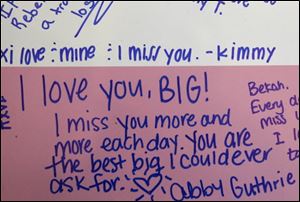 Rebe
xi love :mine :I miss you. -kimmy
I love you, BIG!
I miss you more and
more each day. You are
the best big I could ever
ask for. Abby Guthrie
Bekah.
Every d
miss y
I l